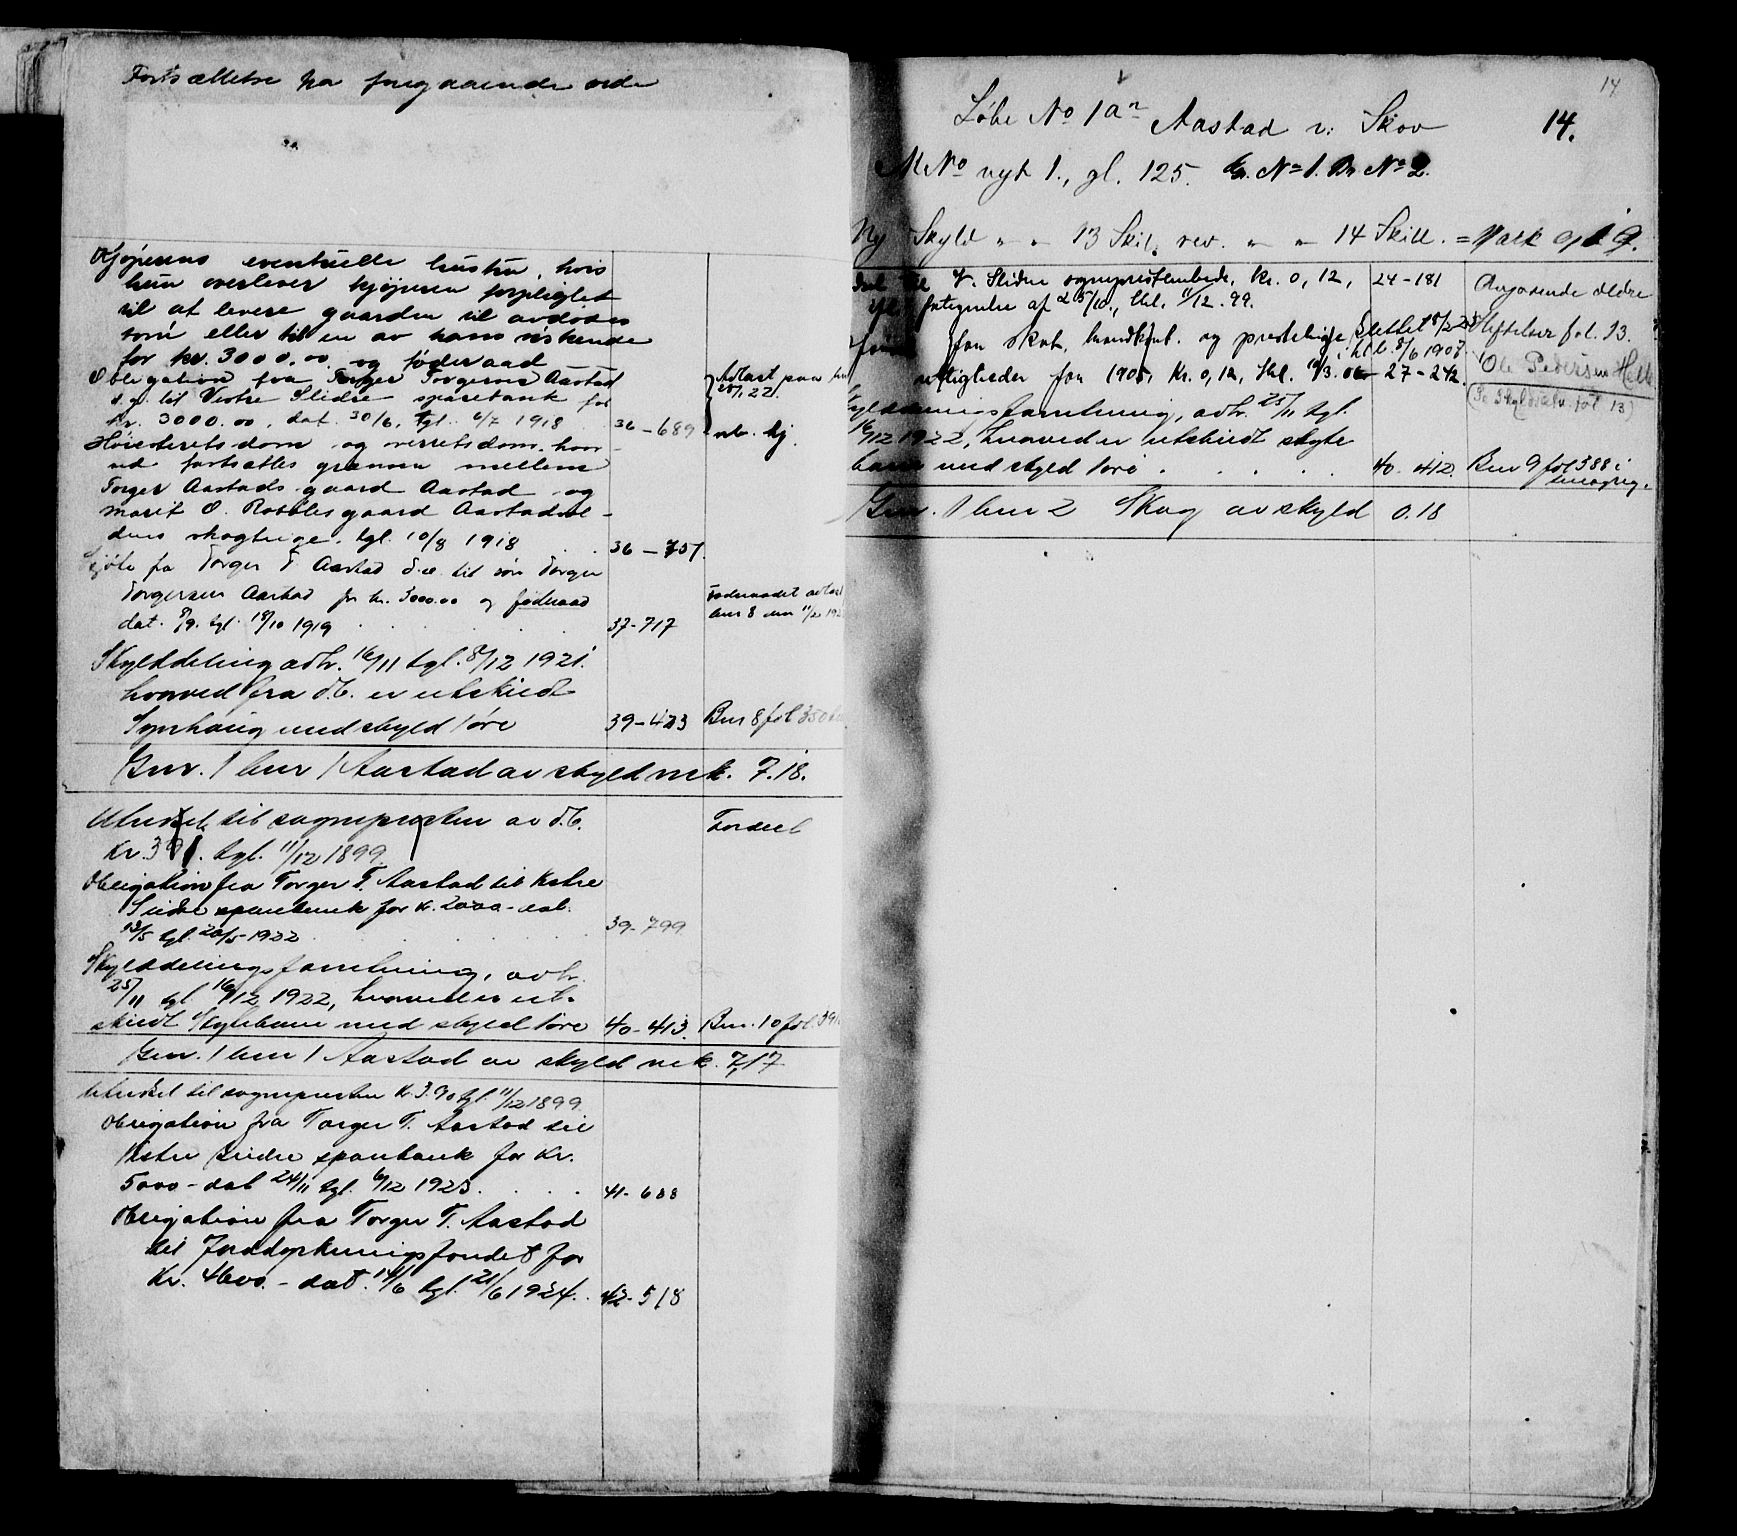 Fortsættelse fra foregaaende side
Kjøperens eventuelle hustru, hvis
hun overlever kjøperen forpligtet
til at levere gaarden til avdødes
søn eller til en av hans søskende
for kr. 3000.00 og føderaad
Obligation fra Torger Torgersen Aastad
d.y. til Vestre Slidre sparebank for
kr. 3000.00, dat. 30/6, tgl. 6/7 1918 . 36-689
Avlæst paa
25/1 22.
nb. kj.
Høiesterets dom og overretsdom, hvor-
ved fastsættes grænsen mellem
Torger Aastads gaard Aastad og
Marit O. Robøles gaard Aastad
dens skogteige. tgl. 10/8 1918 . . 36-757.
Skjøte fra Torger T. Aastad d.æ. til søn Torger
Torgersen Aastad for kr. 3000.00 og føderaad
dat. 8/9. tgl. 18/10 1919 . . . . 37-717
Føderaadet avlæst
bnr 8 den 11/2 192
Skylddeling avh. 16/11 tgl. 8/12 1921.
hvorved fra d.b. er utskildt
Synhaug med skyld 1 øre 39-423 Bnr 8 fol 350
Gnr. 1 bnr 1 Aastad av skyld mk. 7.18.
Utsæt til sognepresten av d.b. Fordeel
Kr. 3 91. tgl. 11/12 1899.
Obligation fra Torger T. Aastad til Vestre
Slidre sparebank for kr. 2000 - dat.
13/5 tgl. 20/5-1922 . . . . 39-799
Skylddelingsforretning, avh.
25/11 tgl 16/12 1922, hvorved er ut-
skildt Skytebane med skyld 1 øre 40-413. Bnr. 10 fol. 391
Gnr. 1 bnr 1 Aastad av skyld mk. 7,17
til sognepresten Kr 3.90 tgl. 11/12 1899
Obligation fra Torger T. Aastad til
Vestre Slidre sparebank for kr.
5000 - dat 24/11 tgl. 6/12 1923. . . . 41-688
Obligation fra Torger T. Aastad
til Jorddyrkningsfondet for
Kr. 4600. - dat. 14/6 tgl. 21/6 1924. . 42-518
14
Løbe No 1 a Aastad v: Skov 14.
M No nyt 1., gl. 125. Gr. No 1. Br No 2.
Ny Skyld " " 13 Skil. rev. " " 14 Skill. = Mark og 19.
til V. Slidre sogneprestembede, kr. 0,12, 24-181
fortegnelse af 25/10, thl. 11/12. 99.
Angaaende ældre
Heftelser fol. 13.
for skat, brandkont. og prestelige Slettet
rettigheder for 1905, Kr. 0,12, thl. 3. 06 27-242.
Ole Pedersen
(Se Skyldsætn. fol 13)
Skylddelingsforretning, avh. 25/11 tgl.
16/12 1922, hvorved er utskildt skyte
bane med skyld 1 øre . . . . 40-412. Bnr 9 fol 388 i
Gnr. 1 bnr 2 Skog av skyld 0.18